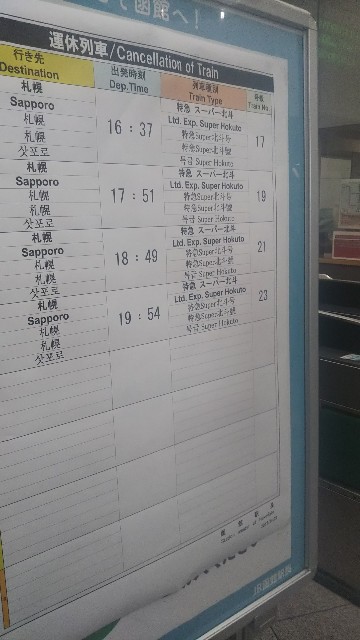 函館へ！
運休列車/Cancellation of Train
行き先
Destination
出発時刻
Dep.Time
列車種別
Train Type
号数
Train No.
札幌
Sapporo
札幌
札幌
삿포로
16:37
特急 スーパー北斗
Ltd. Exp. Super Hokuto
特急Super北斗号
特急Super北斗號
특급 Super Hokuto
17
札幌
Sapporo
札幌
札幌
삿포로
17:51
特急 スーパー北斗
Ltd. Exp. Super Hokuto
特急Super北斗号
特急Super北斗號
특급 Super Hokuto
19
札幌
Sapporo
札幌
札幌
삿포로
18:49
特急 スーパー北斗
Ltd. Exp. Super Hokuto
特急Super北斗号
特急Super北斗號
특급 Super Hokuto
21
札幌
Sapporo
札幌
札幌
삿포로
19:54
特急 スーパー北斗
Ltd. Exp. Super Hokuto
特急Super北斗号
特急Super北斗號
특급 Super Hokuto
23
函館駅長
JR函館駅長